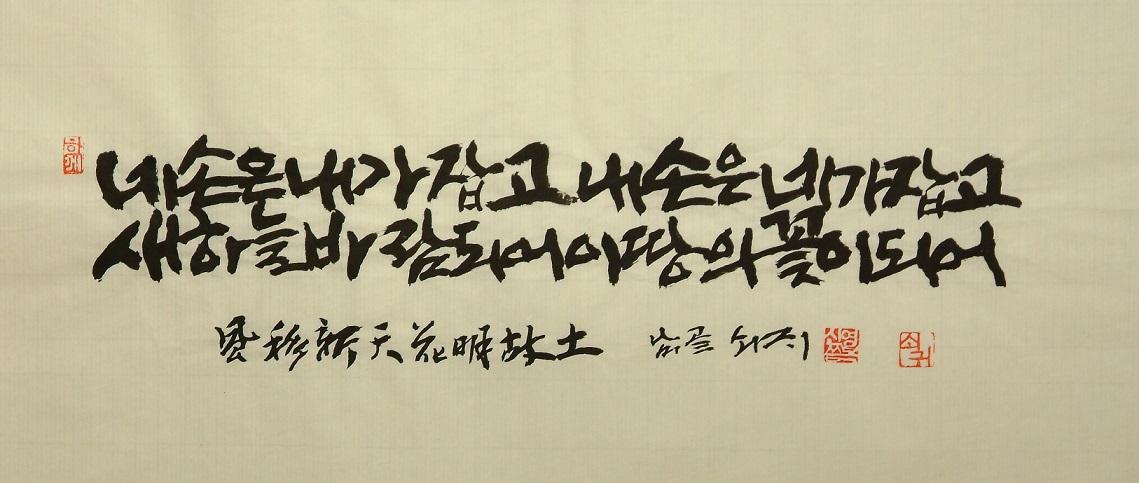 네 손은 내가 잡고 내 손은 네가 잡고
새 하늘 바람 되어 이 땅의 꽃이 되어
風移新天花明故土